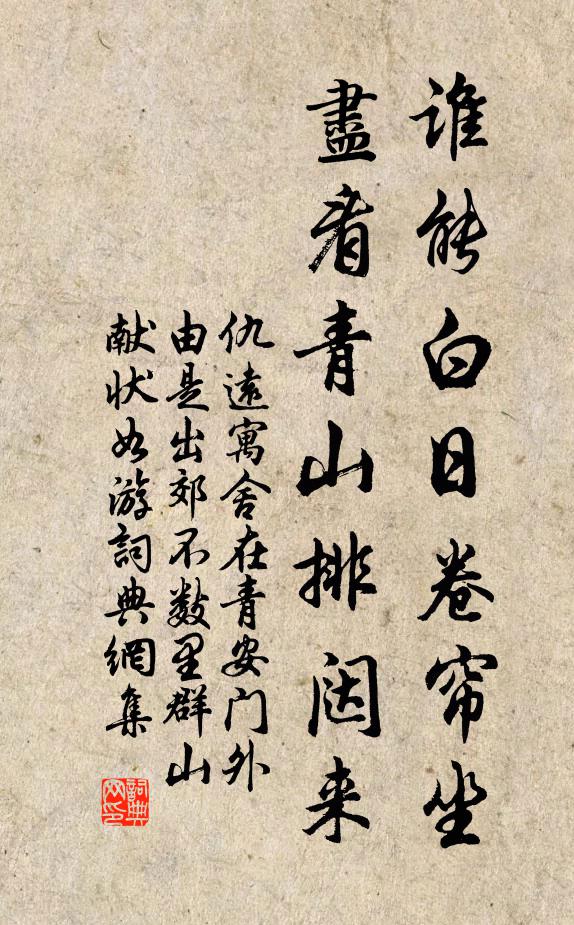 谁能白日卷帘坐
盡看青山排闼来
仇遠寓舍在青安门外
由是出郊不数里群山
献状如游詞典網集
詞典网印